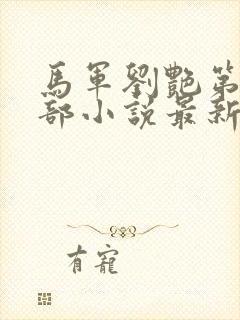 馬軍劉艷第
部小說最新
有寵